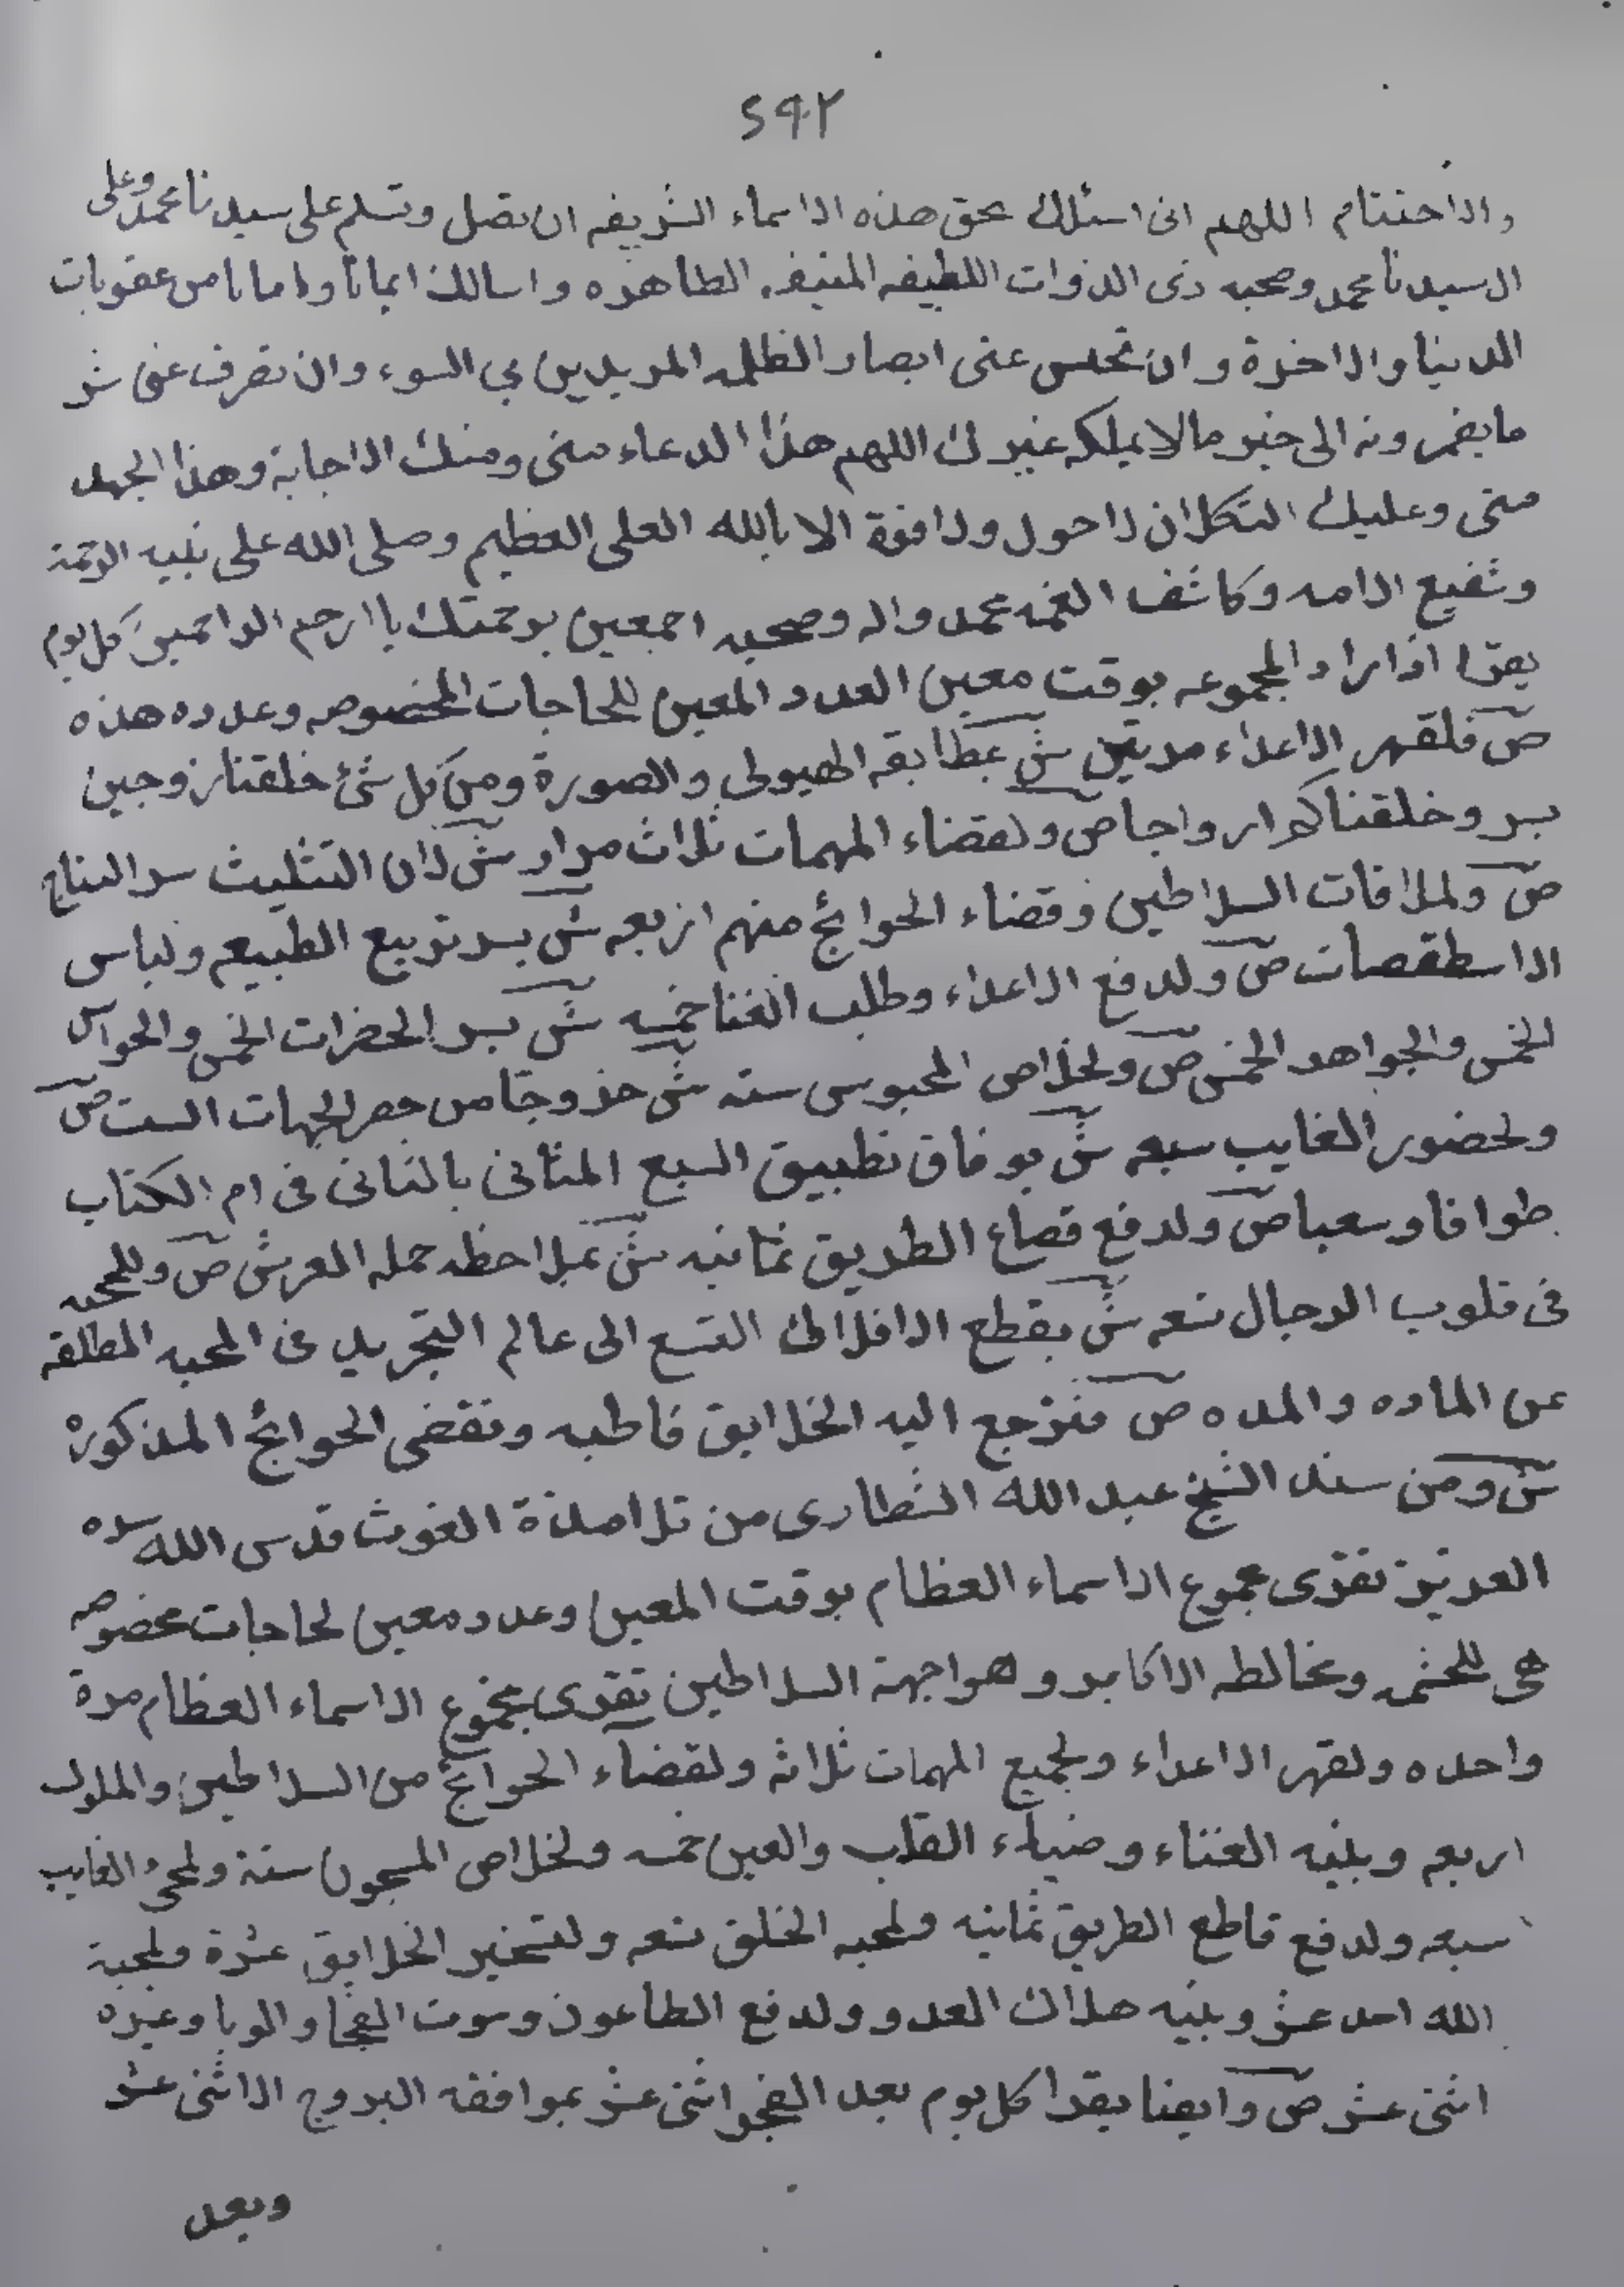 ٢٩٢
والاختتام اللهم انى اسئلك بحق هذه الاسماء الشريفه ان تصل وتسلم على سيدنا محمد وعلى
ال سيدنا محمد وصحبه ذى الذوات اللطيفه المنيفه الطاهره واسالك ايمانا وامانا من عقوبات
الدنيا والاخرة وان تحبس عنى ابصار الظلمه المريدين بى السوء وان تصرف عنى شر
ما يضمرونه الى خير ما لا يملكه غيرك اللهم هذا الدعاء منى ومنك الاجابة وهذا الجهد
منى وعليك التكلان لاحول ولاقوة الا بالله العلى العظيم وصلى الله على نبيه الرحمة
وشفيع الامه وكاشف الغمه محمد واله وصحبه اجمعين برحمتك يا ارحم الراحمين كل يوم
يقرا المجموعه بوقت معين العدد المعين للحاجات المخصوصه وعدده هذه
ص فلقهر الاعداء مرتين ش بمطابقه الهيولى والصورة ومن كل شئ خلقنا زوجين
بسر وخلقناكم ازواجا ص ولقضاء المهمات ثلاث مرار ش لان التثليث سر النتاج
ص ولملاقات السلاطين وقضاء الحوائج منهم اربعه ش بسر تربيع الطبيعه ولباس
الاسطقصات ص ولدفع الاعداء وطلب الغنا خمسه ش بسر الحضرات الخمس والحواس
الخمس والجواهد الخمس ص ولخلاص المحبوس سته ش خروجا من حصر الجهات الست ص
ولحضور الغايب سبعه ش بوفاق تطبيق السبع المثانى بالثانى فى ام الكتاب
طوافا وسعيا ص ولدفع قصاع الطريق ثمانيه ش بملاحظه حمله العرش ص وللمحبه
فى قلوب الرجال تسعه ش بقطع الافلاك التسع الى عالم التجريد فى المحبه المطلقه
عن الماده والمده ص فترجع اليه الخلايق قاطبه وتقضى الحوائج المذكورة
ش ومن سند الشيخ عبد الله الشطارى من تلامذة الغوث قدس الله سره
العزيز تقرى مجموع الاسماء العظام بوقت المعين وعدد معين لحاجات مخصوصه
هى للحشمه ومخالطه الاكابر وهواجهة السلاطين تقرى مجموع الاسماء العظام مرة
واحده ولقهر الاعداء ولجميع المهمات ثلاثه ولقضاء الحوائج من السلاطين والملوك
اربعه وبنيه الغناء وضياء القلب والعين خمسه ولخلاص المسجون ستة ولمجئ الغايب
سبعه ولدفع قاطع الطريق ثمانيه ولمحبه الخلق تسعه ولتسخير الخلايق عشرة ولمحبة
الله احد عشر وبنيه هلاك العدو ولدفع الطاعون وموت الفجا والوبا وغيره
اثنى عشر ص وايضا يقرا كل يوم بعد الفجر اثنى عشر بموافقه البروج الاثنى عشر
وبعد